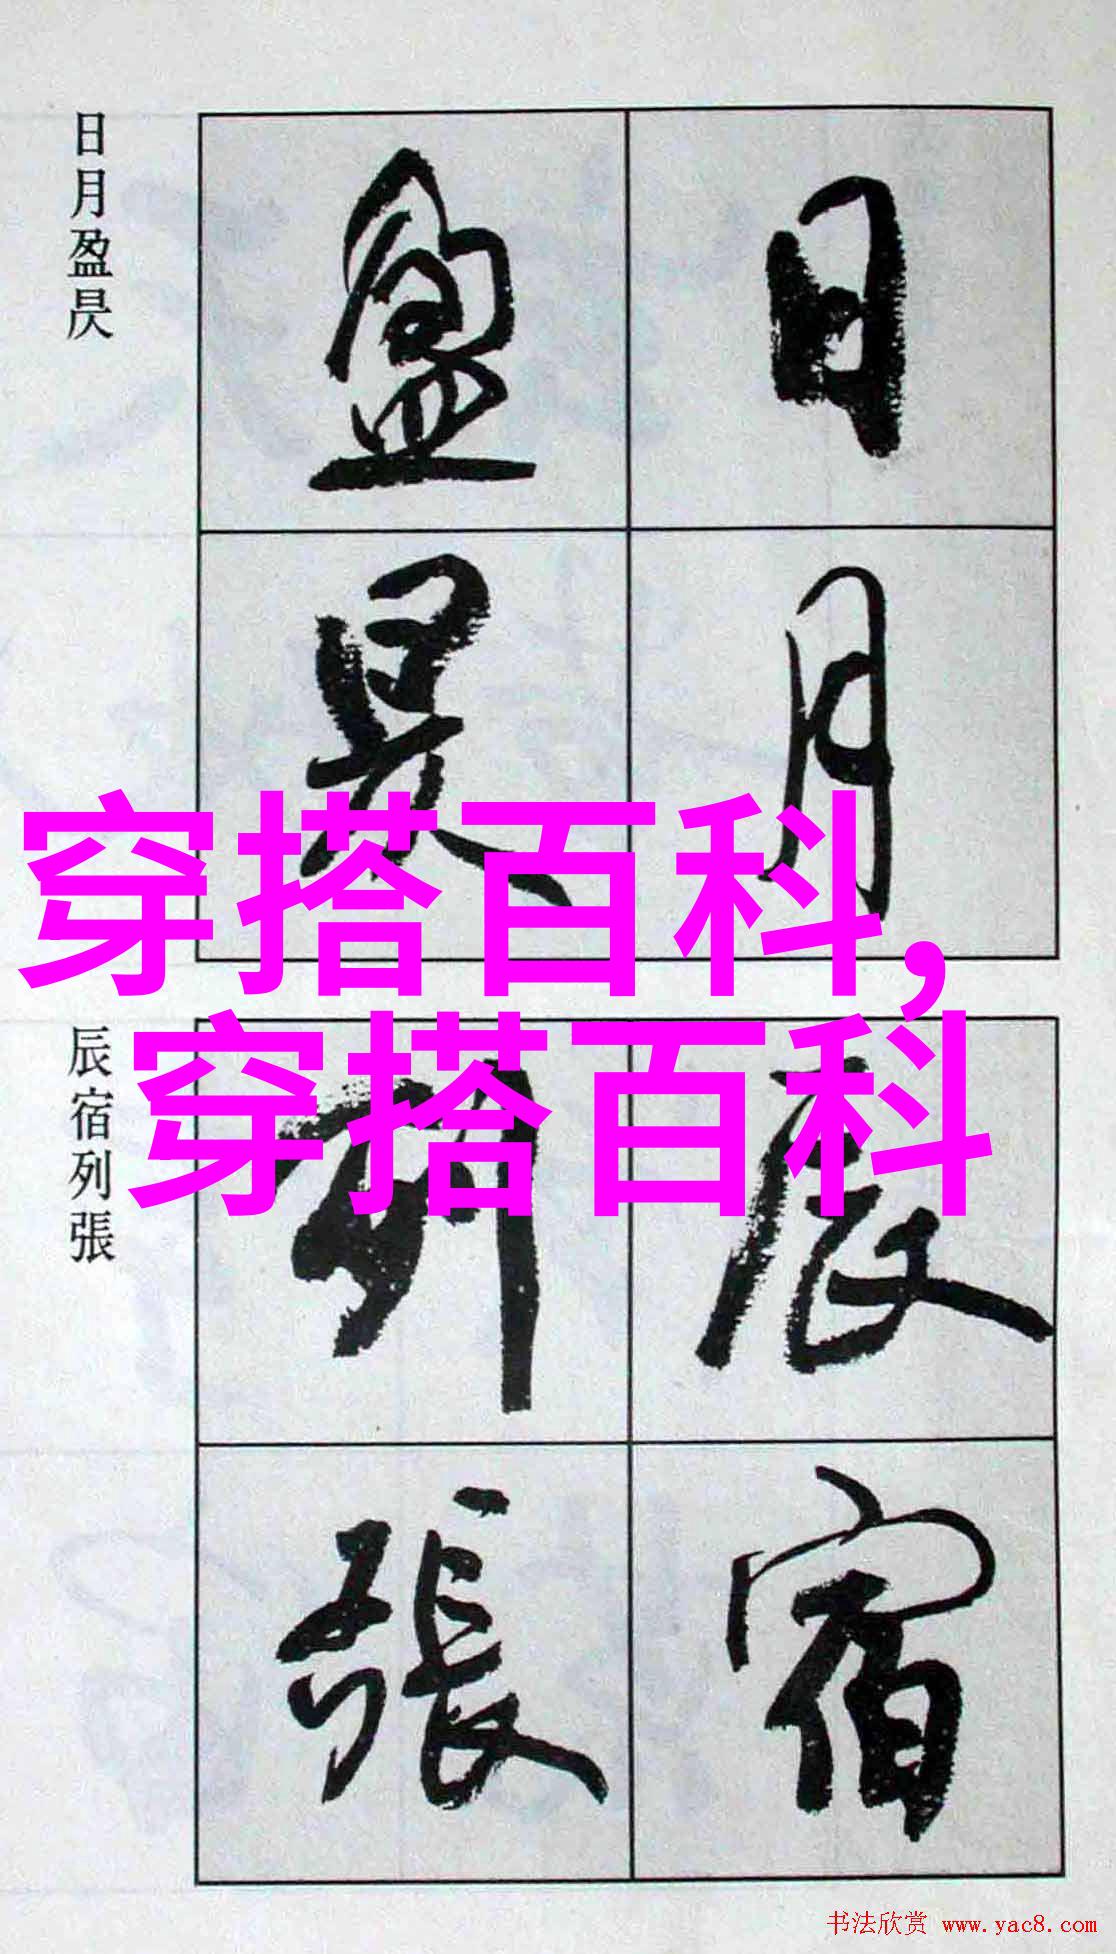 日月盈昃
日月
盈昃
穿搭百科,
穿搭百科
辰宿列張
辰宿
列張
书法欣赏 www.yac8.com